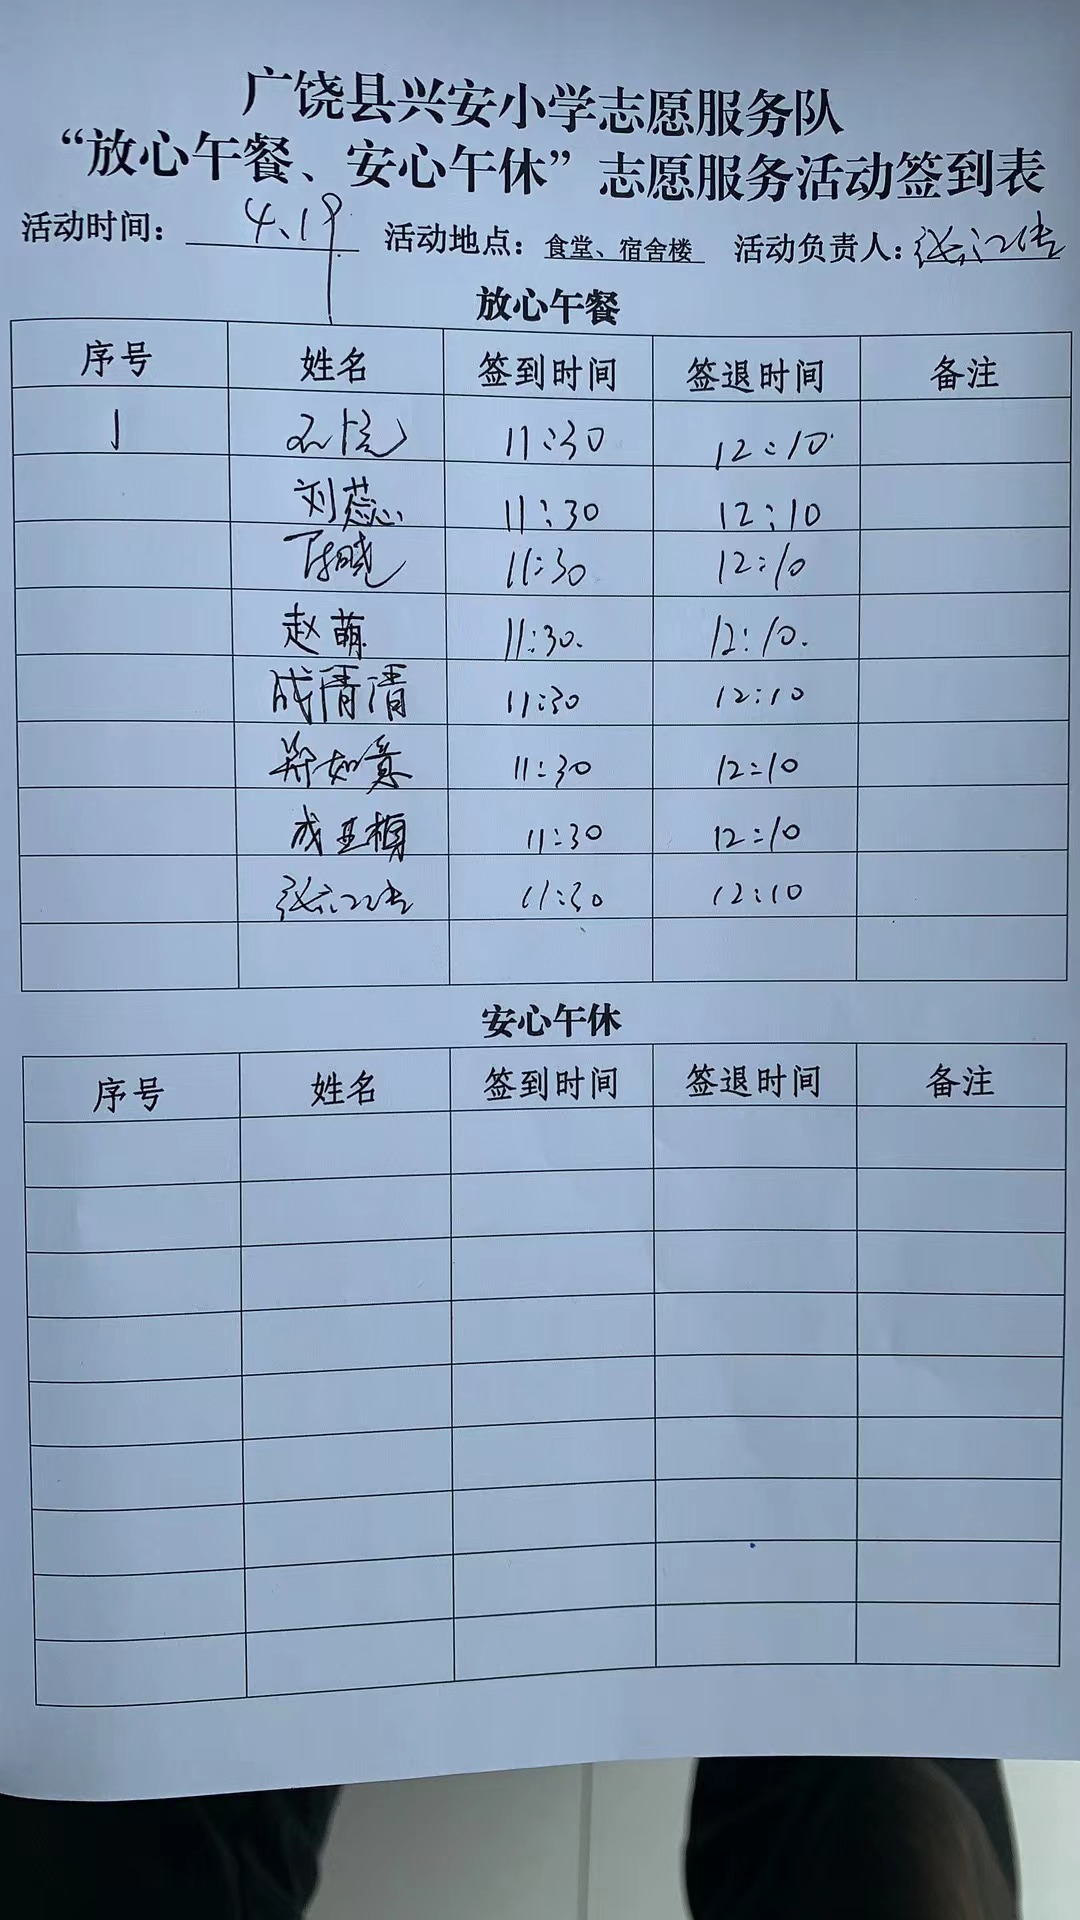 广饶县兴安小学志愿服务队
“放心午餐、安心午休”志愿服务活动签到表
活动时间：4.19 活动地点：食堂、宿舍楼 活动负责人：
放心午餐
序号 姓名 签到时间 签退时间 备注
1 11:30 12:10
刘蕊 11:30 12:10
陈晓 11:30 12:10
赵萌 11:30. 12:10.
成倩倩 11:30 12:10
郑如意 11:30 12:10
成亚楠 11:30 12:10
11:30 12:10
安心午休
序号 姓名 签到时间 签退时间 备注